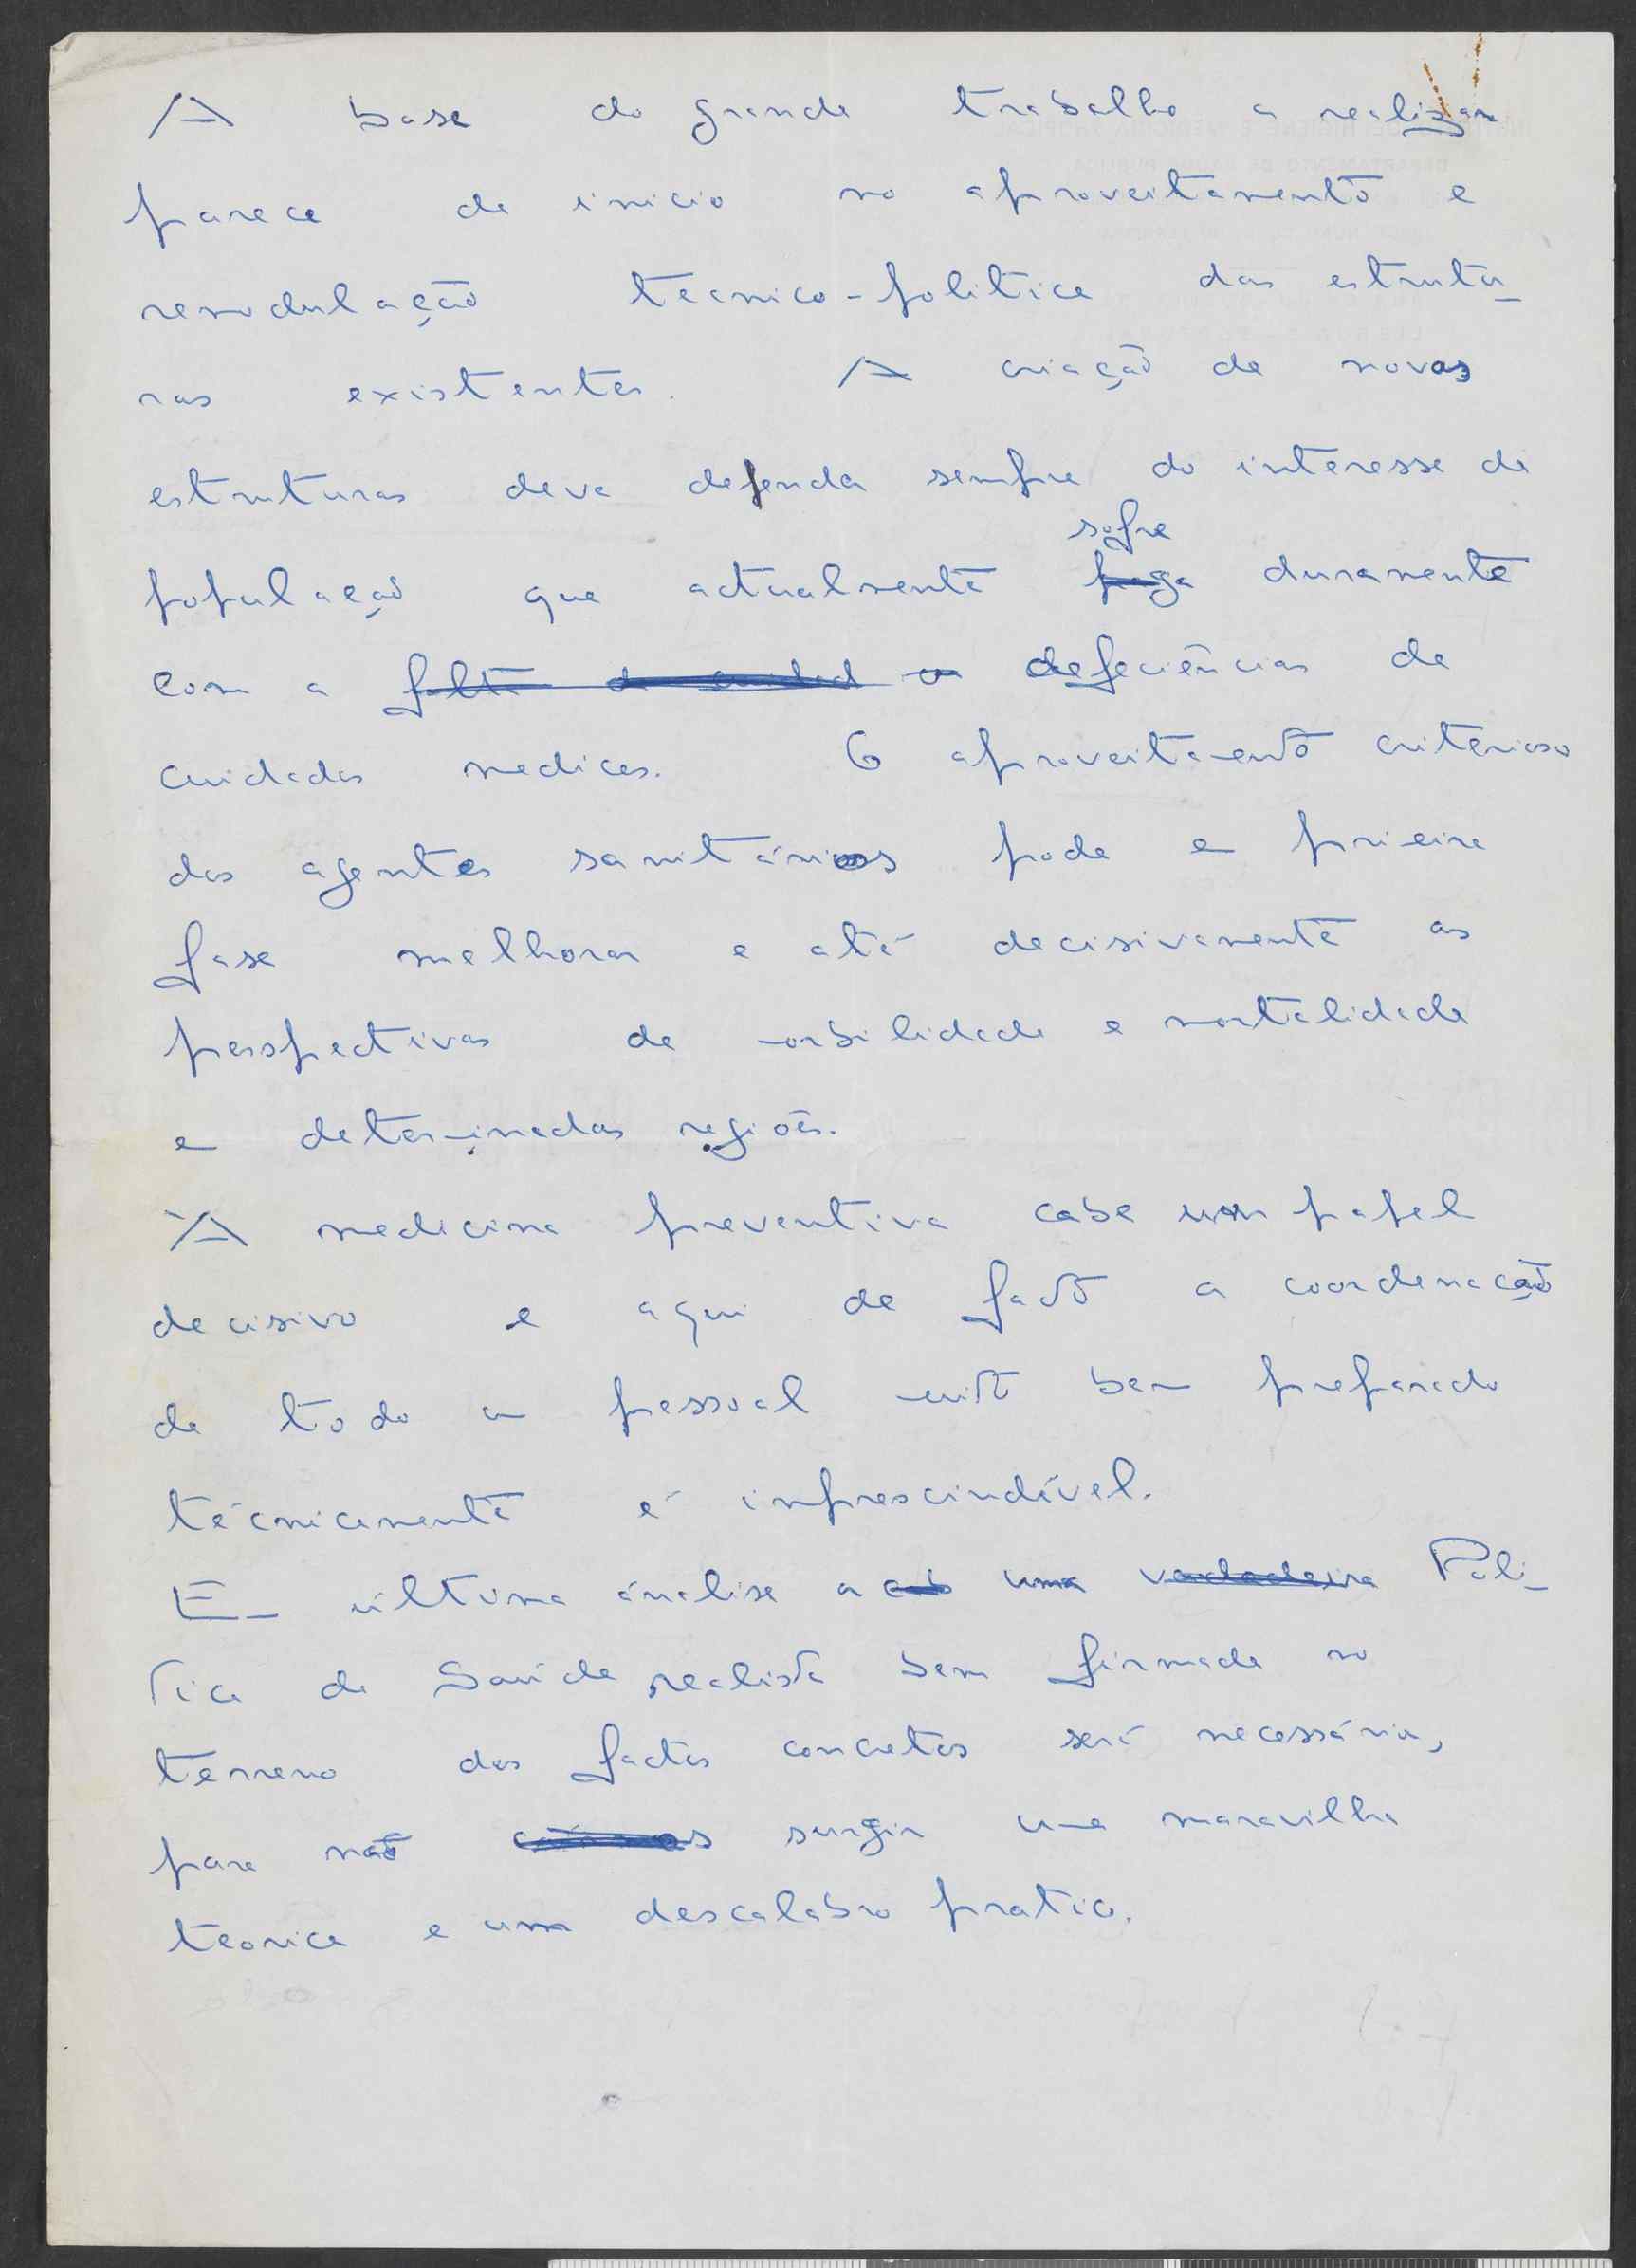 A base do grande trabalho a realizar
parece de inicio no aproveitamento e
remodulação tecnico-politica das estrutu-
ras existentes. A criação de novas
estruturas deve depender sempre do interesse da
sofre
população que actualmente paga duramente
com a falta de cuidad as defeciências de
cuidados medicos. O aproveitamento criterioso
dos agentes sanitários pode em primeira
fase melhorar e até decisivamente as
perspectivas de morbilidade e mortalidade
em determinadas regiões.
À medicina preventiva cabe um papel
decisivo e aqui de facto a coordenação
de todo um pessoal muito bem preparado
técnicamente é imprescindível.
Em última análise a uma verdadeira Poli-
tica de Saúde realista bem firmada no
terreno dos factos concretos será necessária,
para não surgir uma maravilha
teorica e um descalabro pratico.